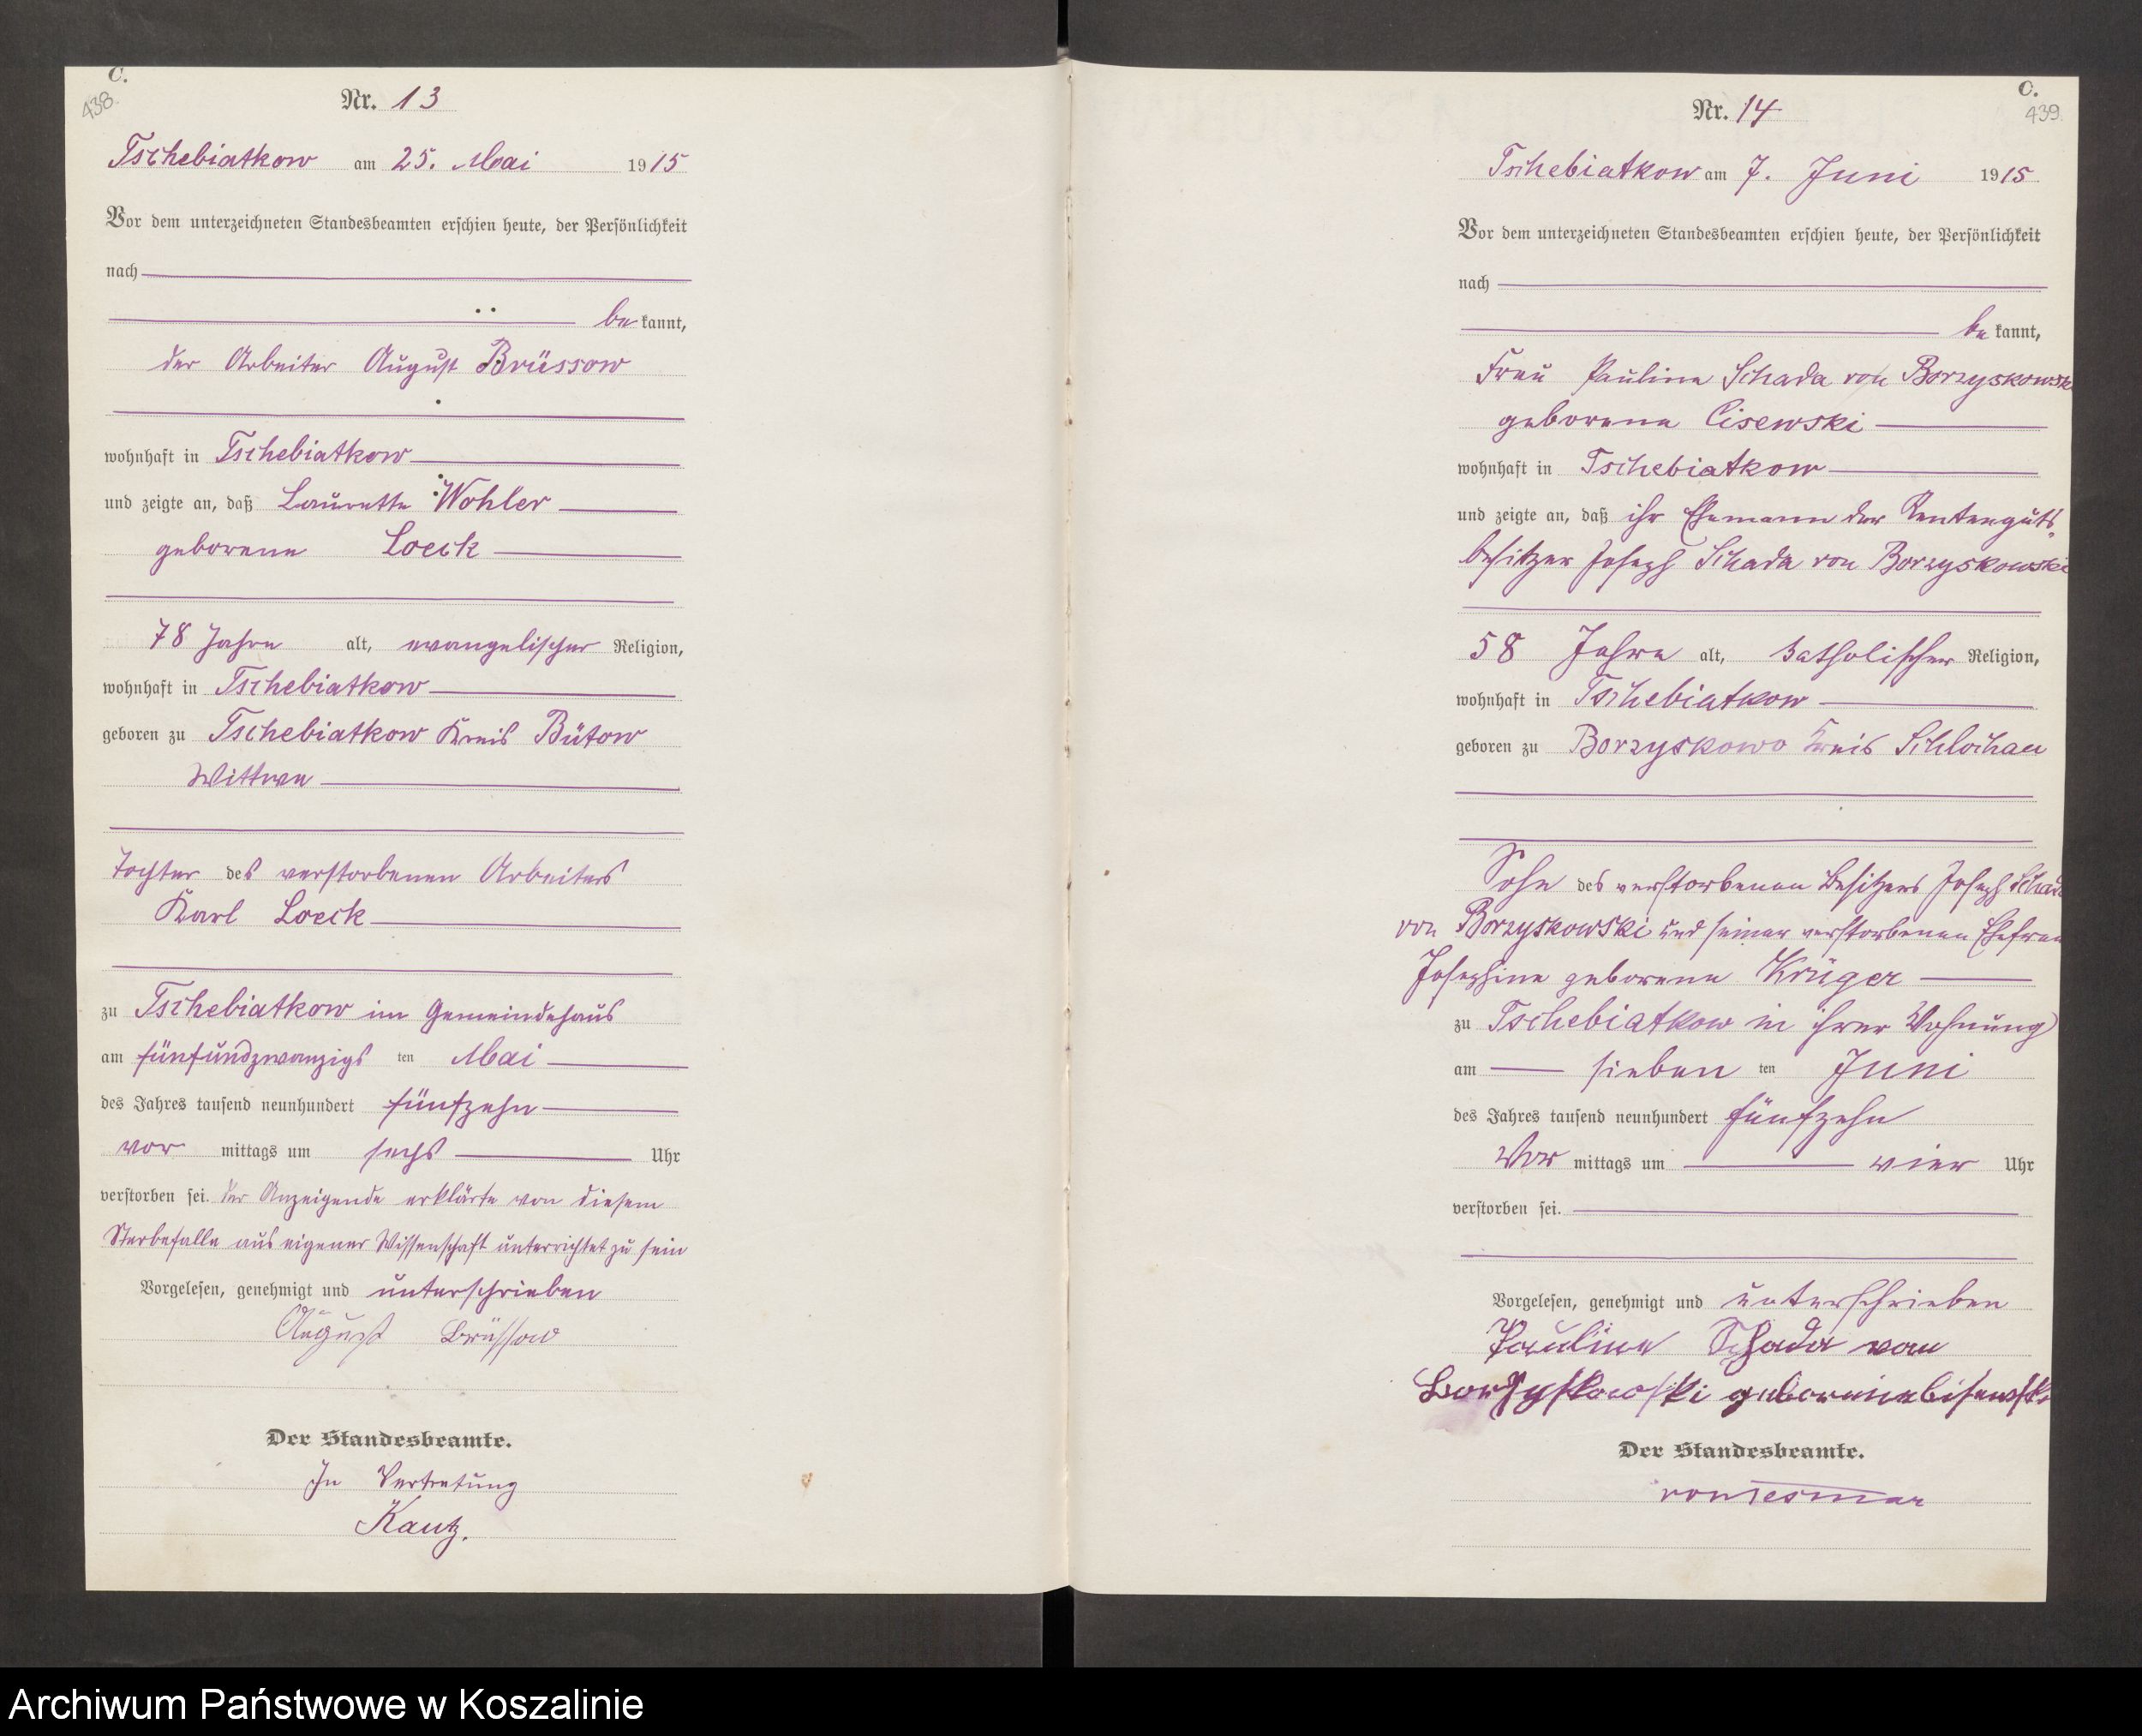 C.
438.
Nr. 13
Tschebiatkow am 25. Mai 1915
Vor dem unterzeichneten Standesbeamten erschien heute, der Persönlichkeit
nach
be kannt,
der Arbeiter August Brüssow
wohnhaft in Tschebiatkow
und zeigte an, daß Laurette Wohler
geborene Loeck
78 Jahre alt, evangelischer Religion,
wohnhaft in Tschebiatkow
geboren zu Tschebiatkow Kreis Bütow
Wittwe
Tochter des verstorbenen Arbeiters
Karl Loeck
zu Tschebiatkow im Gemeindehaus
am fünfundzwanzigs ten Mai
des Jahres tausend neunhundert fünfzehn
vor mittags um sechs Uhr
verstorben sei. Der Anzeigende erklärte von diesem
Sterbefalle aus eigener Wissenschaft unterrichtet zu sein
Vorgelesen, genehmigt und unterschrieben
August Brüssow
Der Standesbeamte.
In Vertretung
Kautz.
C.
439.
Nr. 14
Tschebiatkow am 7. Juni 1915
Vor dem unterzeichneten Standesbeamten erschien heute, der Persönlichkeit
nach
be kannt,
Frau Pauline Schada von Borzyskowski
geborene Cisewski
wohnhaft in Tschebiatkow
und zeigte an, daß ihr Ehemann der Rentenguts-
besitzer Joseph Schada von Borzyskowski
58 Jahre alt, katholischer Religion,
wohnhaft in Tschebiatkow
geboren zu Borzyskowo Kreis Schlochau
Sohn des verstorbenen Besitzers Joseph Schada
von Borzyskowski und seiner verstorbenen Ehefrau
Josephine geborene Krüger
zu Tschebiatkow in ihrer Wohnung
am sieben ten Juni
des Jahres tausend neunhundert fünfzehn
Vor mittags um vier Uhr
verstorben sei.
Vorgelesen, genehmigt und unterschrieben
Pauline Schada von
Borzyskowski geborene Cisewski
Der Standesbeamte.
von Tesmar
Archiwum Państwowe w Koszalinie